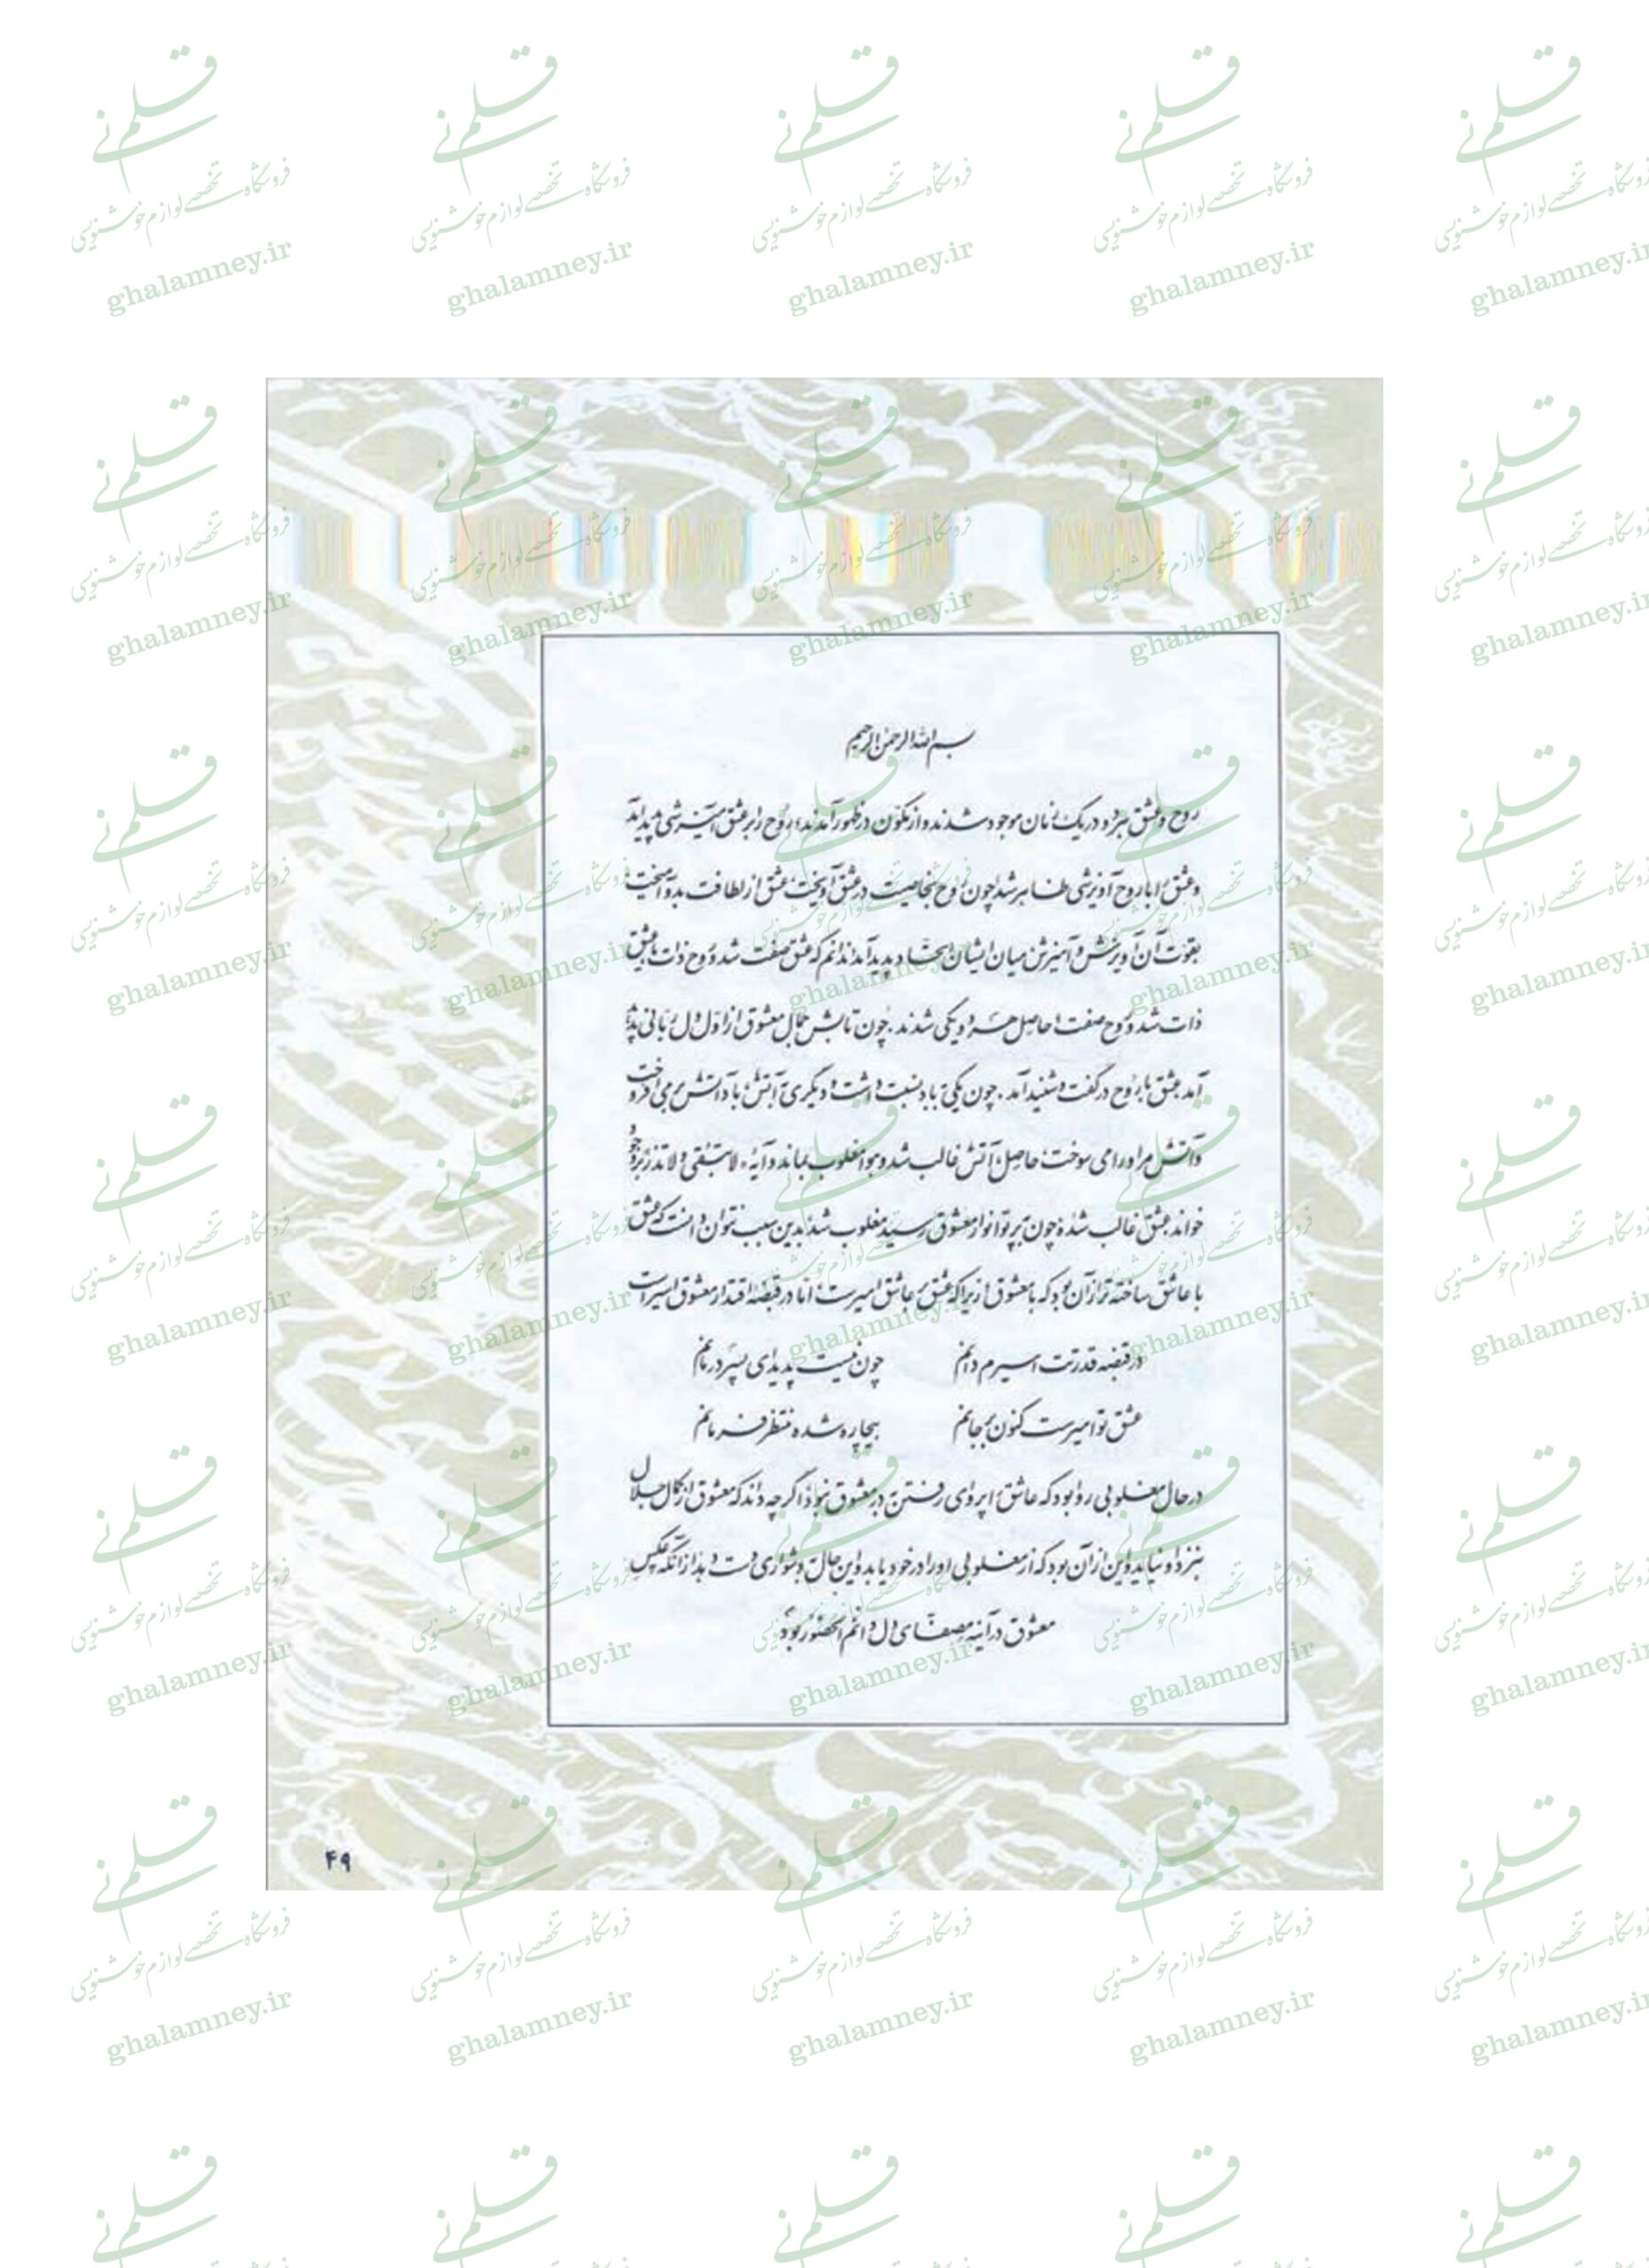 بسم الله الرحمن الرحیم
روح و عشق هر دو در یک زمان موجود شدند و از مکون در ظهور آمدند، روح را بر عشق آمیزشی پدید آمد
و عشق را با روح آویزشی ظاهر شد چون روح بخاصیت در عشق آویخت عشق از لطافت بدو آمیخت
بقوت آن آویزش و آمیزش میان ایشان اتحاد پدید آمد ندانم که عشق صفت شد و روح ذات یا عشق
ذات شد و روح صفت حاصل هر دو یکی شدند. چون تابش جمال معشوق از اول دل ربانی پدید
آمد عشق با روح در گفت و شنید آمد. چون یکی بباد نسبت داشت و دیگری بآتش باد آتش را می افروخت
و آتش مر او را می سوخت حاصل آتش غالب شد و هوا مغلوب بماند و آیه لا تبقی و لا تذر بر وجود
خواند عشق غالب شده چون بر پرتو انوار معشوق رسید مغلوب شد بدین سبب نتوان دانست که عشق
با عاشق ساخته تر از آن بود که با معشوق زیرا که عشق بر عاشق امیرست اما در قبضه اقتدار معشوق اسیر است
در قبضه قدرتت اسیرم دانم چون نیست پدید ای پسر درمانم
عشق تو امیرست کنون بر جانم بیچاره شده منتظر فرمانم
در حال مغلوبی روا بود که عاشق را پروای رفتن بر در معشوق نبود اگر چه داند که معشوق از کمال جلال
بنزد او نیاید و این از آن بود که از مغلوبی او را در خود یابد و این حال بدشواری دست دهد از آنکه عکس
معشوق در آینه صفای دل دائم الحضور بود
۴۹
قلم نی
فروشگاه تخصصی لوازم خوشنویسی
ghalamney.ir